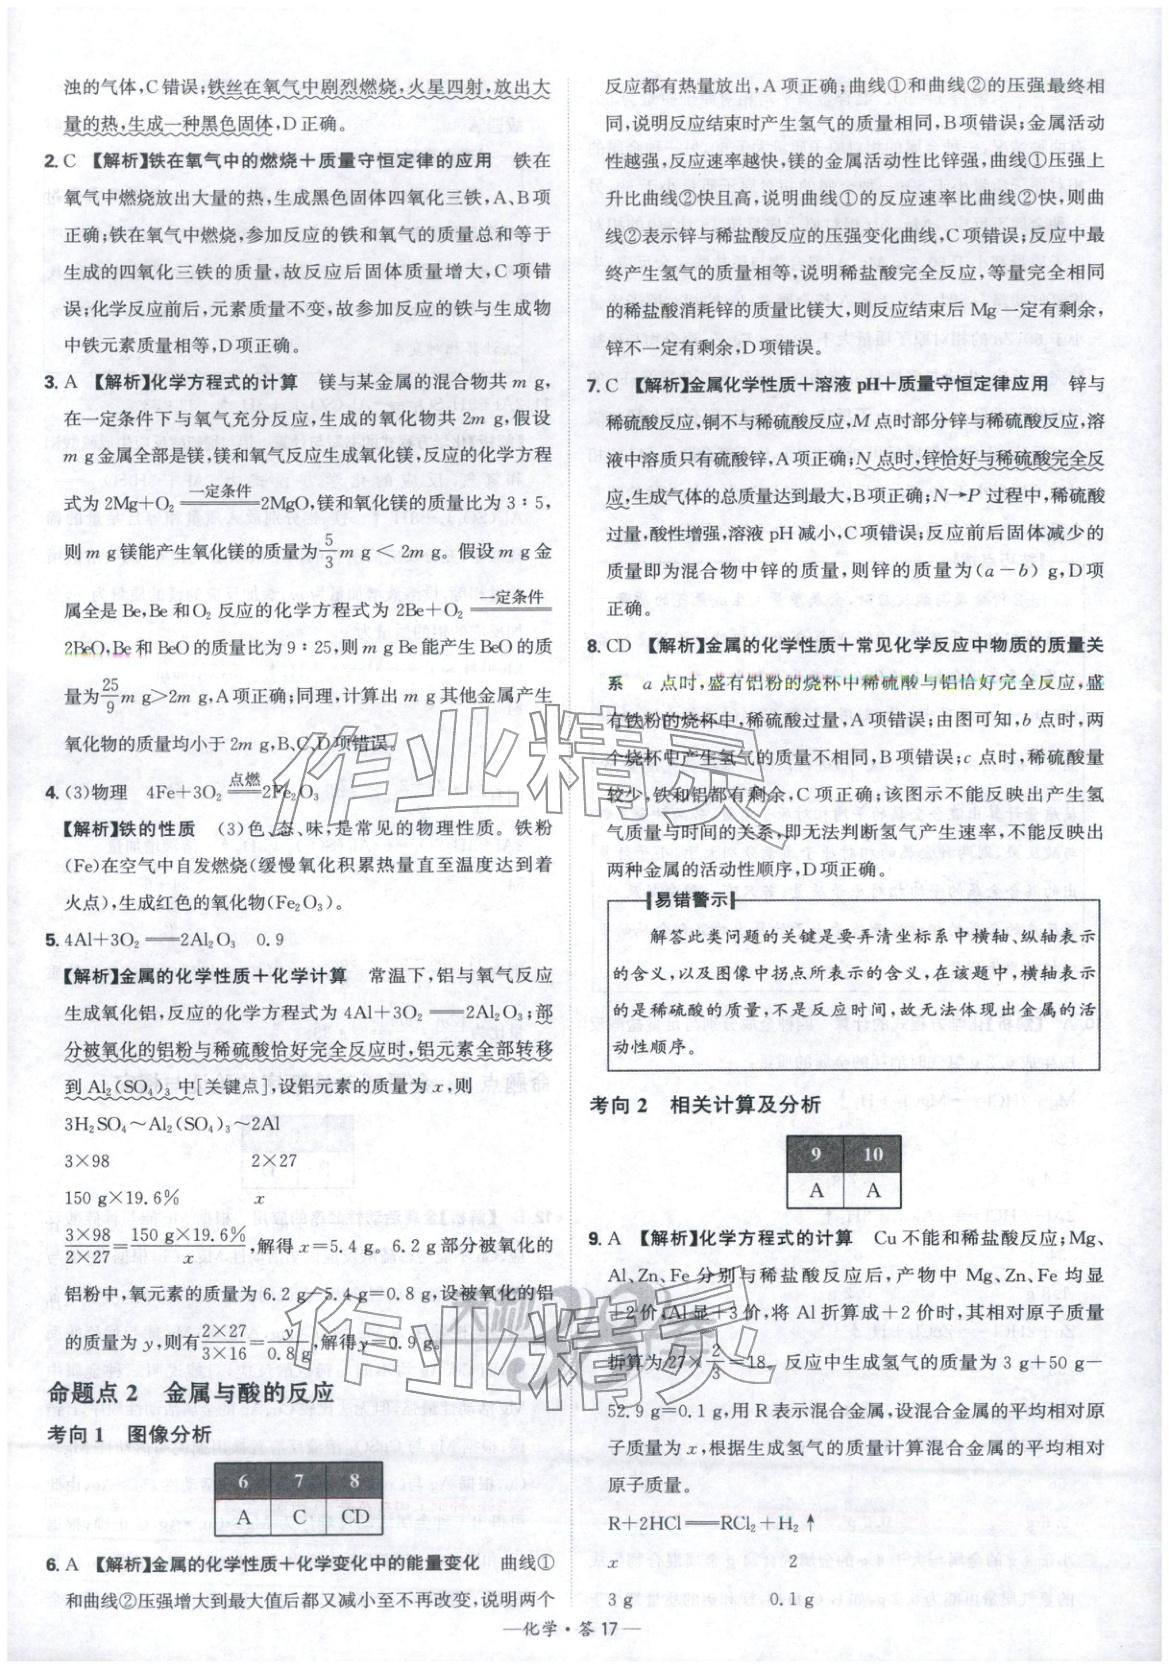 浊的气体,C错误;铁丝在氧气中剧烈燃烧,火星四射,放出大
量的热,生成一种黑色固体,D正确。
2. C 【解析】铁在氧气中的燃烧＋质量守恒定律的应用 铁在
氧气中燃烧放出大量的热,生成黑色固体四氧化三铁,A、B项
正确;铁在氧气中燃烧,参加反应的铁和氧气的质量总和等于
生成的四氧化三铁的质量,故反应后固体质量增大,C项错
误;化学反应前后,元素质量不变,故参加反应的铁与生成物
中铁元素质量相等,D项正确。
3. A 【解析】化学方程式的计算 镁与某金属的混合物共 m g,
在一定条件下与氧气充分反应,生成的氧化物共 2m g,假设
m g金属全部是镁,镁和氧气反应生成氧化镁,反应的化学方程
式为 2Mg+O₂ 一定条件══ 2MgO,镁和氧化镁的质量比为 3∶5,
则 m g 镁能产生氧化镁的质量为 5/3 m g＜2m g。假设 m g 金
属全是 Be,Be 和 O₂ 反应的化学方程式为 2Be+O₂ 一定条件══
2BeO,Be 和 BeO 的质量比为 9∶25,则 m g Be 能产生 BeO 的质
量为 25/9 m g＞2m g,A项正确;同理,计算出 m g 其他金属产生
氧化物的质量均小于 2m g,B、C、D项错误。
4. (3)物理 4Fe+3O₂ 点燃══ 2Fe₂O₃
【解析】铁的性质 (3)色、态、味,是常见的物理性质。铁粉
(Fe)在空气中自发燃烧(缓慢氧化积累热量直至温度达到着
火点),生成红色的氧化物(Fe₂O₃)。
5. 4Al+3O₂══2Al₂O₃ 0.9
【解析】金属的化学性质＋化学计算 常温下,铝与氧气反应
生成氧化铝,反应的化学方程式为 4Al+3O₂══2Al₂O₃;部
分被氧化的铝粉与稀硫酸恰好完全反应时,铝元素全部转移
到 Al₂(SO₄)₃ 中[关键点],设铝元素的质量为 x,则
3H₂SO₄～Al₂(SO₄)₃～2Al
3×98 2×27
150 g×19.6% x
3×98/2×27=150 g×19.6%/x,解得 x=5.4 g。6.2 g部分被氧化的
铝粉中,氧元素的质量为 6.2 g－5.4 g=0.8 g,设被氧化的铝
的质量为 y,则有 2×27/3×16=y/0.8 g,解得 y=0.9 g。
命题点 2 金属与酸的反应
考向 1 图像分析
6 7 8
A C CD
6. A 【解析】金属的化学性质＋化学变化中的能量变化 曲线①
和曲线②压强增大到最大值后都又减小至不再改变,说明两个
反应都有热量放出,A项正确;曲线①和曲线②的压强最终相
同,说明反应结束时产生氢气的质量相同,B项错误;金属活动
性越强,反应速率越快,镁的金属活动性比锌强,曲线①压强上
升比曲线②快且高,说明曲线①的反应速率比曲线②快,则曲
线②表示锌与稀盐酸反应的压强变化曲线,C项错误;反应中最
终产生氢气的质量相等,说明稀盐酸完全反应,等量完全相同
的稀盐酸消耗锌的质量比镁大,则反应结束后 Mg 一定有剩余,
锌不一定有剩余,D项错误。
7. C 【解析】金属化学性质＋溶液 pH＋质量守恒定律应用 锌与
稀硫酸反应,铜不与稀硫酸反应,M 点时部分锌与稀硫酸反应,溶
液中溶质只有硫酸锌,A项正确;N 点时,锌恰好与稀硫酸完全反
应,生成气体的总质量达到最大,B项正确;N→P 过程中,稀硫酸
过量,酸性增强,溶液 pH 减小,C项错误;反应前后固体减少的
质量即为混合物中锌的质量,则锌的质量为(a－b) g,D项
正确。
8. CD 【解析】金属的化学性质＋常见化学反应中物质的质量关
系 a 点时,盛有铝粉的烧杯中稀硫酸与铝恰好完全反应,盛
有铁粉的烧杯中,稀硫酸过量,A项错误;由图可知,b 点时,两
个烧杯中产生氢气的质量不相同,B项错误;c 点时,稀硫酸量
较少,铁和铝都有剩余,C项正确;该图示不能反映出产生氢
气质量与时间的关系,即无法判断氢气产生速率,不能反映出
两种金属的活动性顺序,D项正确。
易错警示
解答此类问题的关键是要弄清坐标系中横轴、纵轴表示
的含义,以及图像中拐点所表示的含义,在该题中,横轴表示
的是稀硫酸的质量,不是反应时间,故无法体现出金属的活
动性顺序。
考向 2 相关计算及分析
9 10
A A
9. A 【解析】化学方程式的计算 Cu 不能和稀盐酸反应;Mg、
Al、Zn、Fe 分别与稀盐酸反应后,产物中 Mg、Zn、Fe 均显
＋2价,Al显＋3价,将 Al 折算成＋2价时,其相对原子质量
折算为 27×2/3=18。反应中生成氢气的质量为 3 g+50 g－
52.9 g=0.1 g,用 R 表示混合金属,设混合金属的平均相对原
子质量为 x,根据生成氢气的质量计算混合金属的平均相对
原子质量。
R+2HCl══RCl₂+H₂↑
x 2
3 g 0.1 g
作业精灵
作业精灵
—化学·答 17—